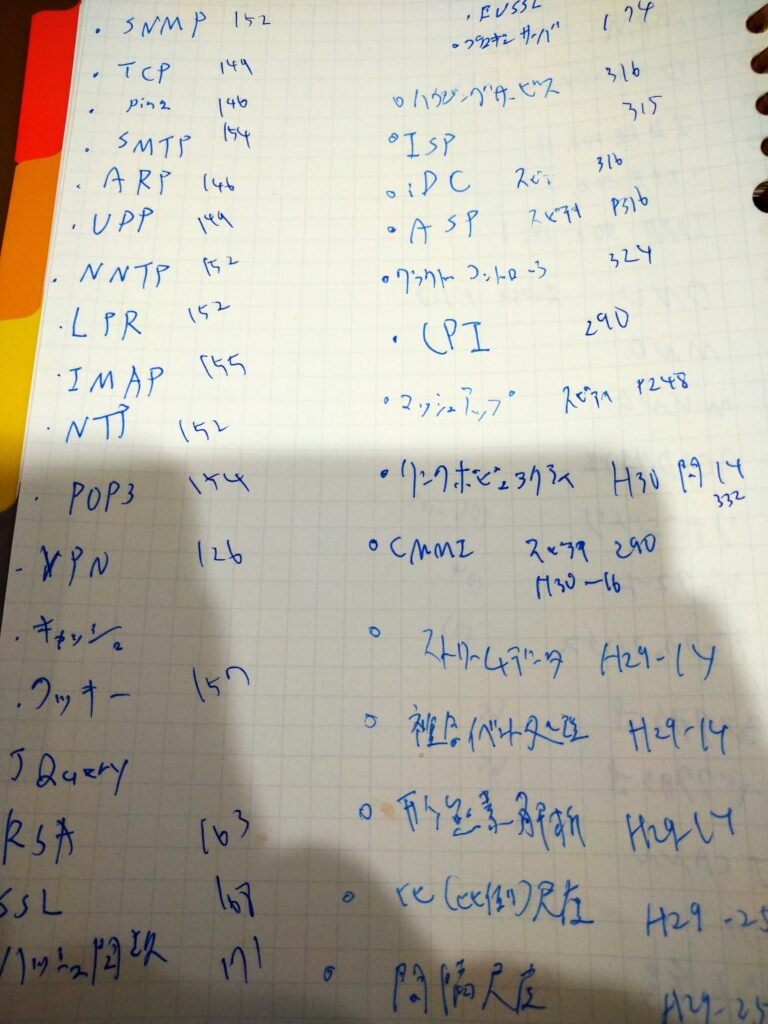 ・SNMP 152
・TCP 149
・ping 146
・SMTP 154
・ARP 146
・UDP 149
・NNTP 152
・LPR 152
・IMAP 155
・NTP 152
・POP3 154
・VPN 126
・キャッシュ
・クッキー 157
JQuery
RSA 163
SSL 168
ハッシュ関数 171
・EVSSL
・プロキシサーバ 174
○ハウジングサービス 316
315
○ISP
○iDC スピテ 316
・ASP スピテキ P316
○クラウドコントローラ 324
・CPI 290
・マッシュアップ スピテキ P248
・H30 問14
332
○CMMI スピテキ 290
H30-16
○ストリームデータ H29-14
○複合イベント処理 H29-14
○形態素解析 H29-14
○比(比例)尺度 H29-25
○間隔尺度 H29-25